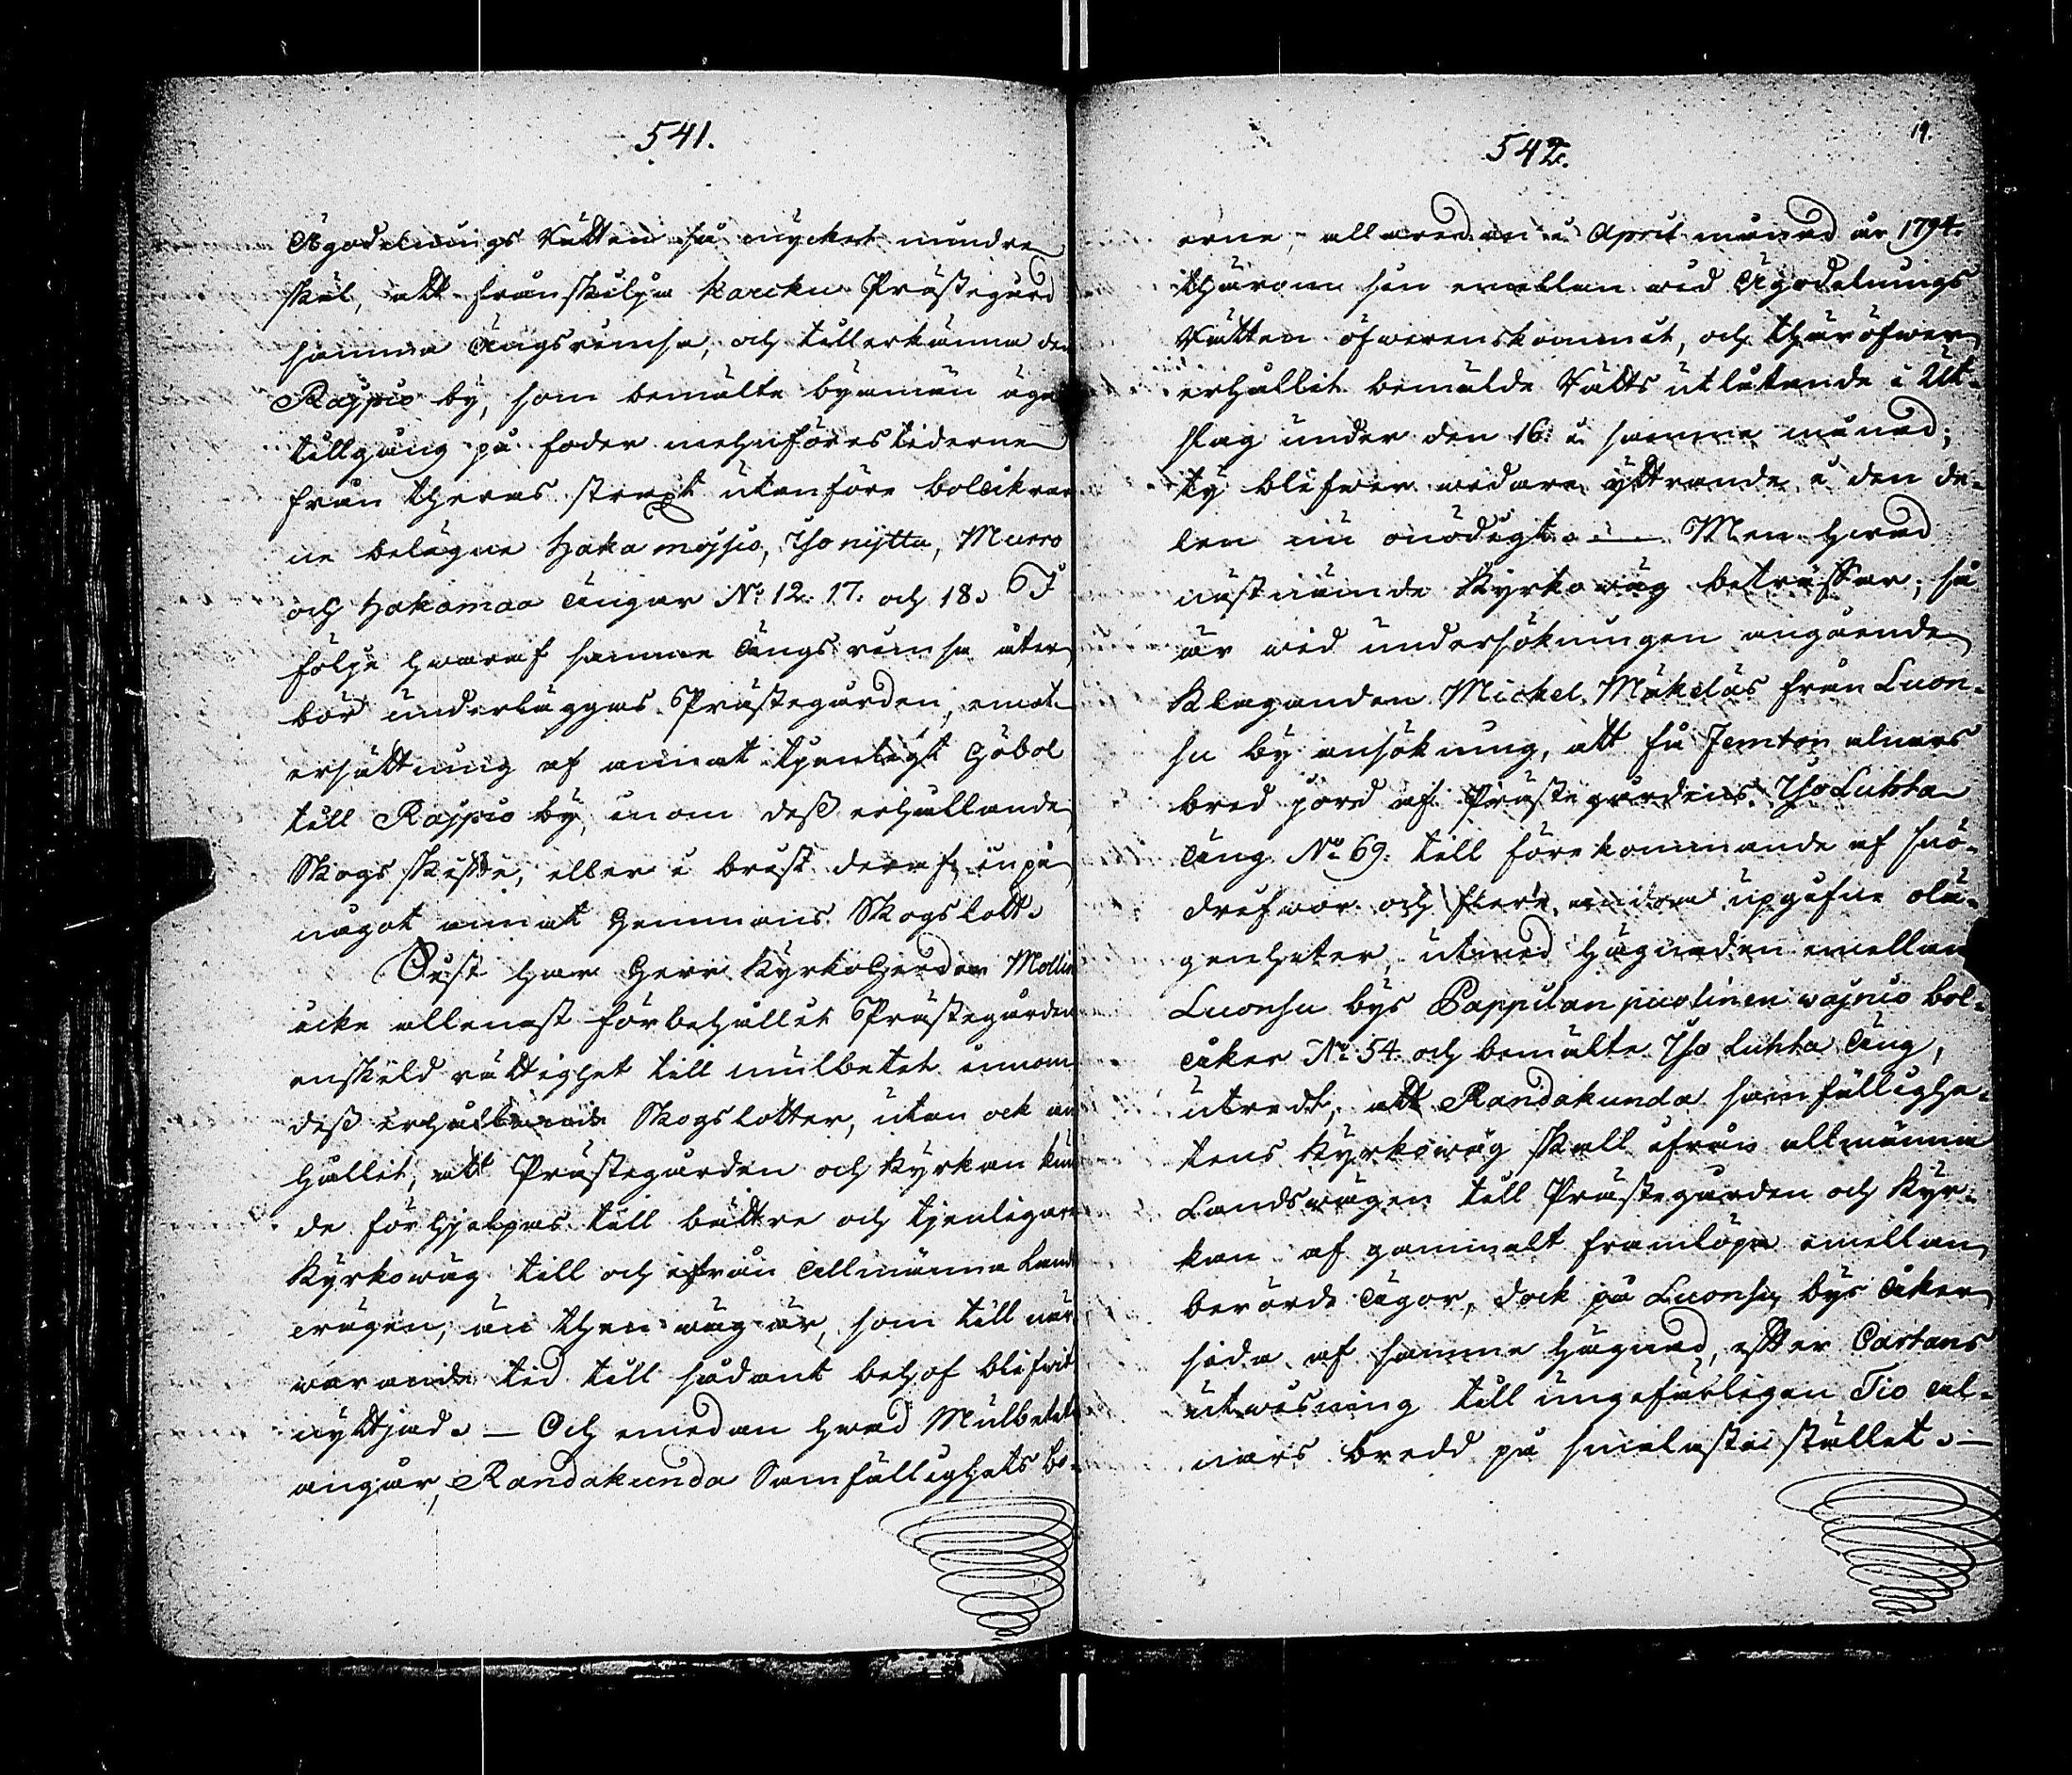 541.
Ägodelnings Rätten så mycket mindre
skäl, att frånskilja Karcku Prästegård
samma Ängsremsa, och tillerkänna den
Rajpio by, som bemälte byamän äga
tillgång på foder mehnföres tiderne
från theras strax utanföre bolåkrar-
ne belägne Haka mojsio, Iso nijtta, Murro
och Hakamaa ängar No. 12. 17. och 18. I
följe hwaraf samma Ängs remsa åter
bör underläggas Prästegården, emot
ersättning af annat tjenligt Göbol
till Rajpio by, inom dess erhållande
Skogs skifte, eller i brist deraf, inpå
något annat Hemmans Skogslott.
Sist har Herr Kyrkoherden Mollin
icke allenast förbehållit Prästegården
enskild rättighet till mulbetet innom
dess erhållande Skogslotter, utan ock an-
hållit, att Prästegården och Kyrkan kun-
de förhjelpas till bättre och tjenligare
Kyrkowäg till och ifrån allmänna Lands
wägen, än then wäg är, som till när-
warande tid till sådant behof blifwit
nyttjad. — Och emedan hwad Mulbetet
angår, Randakunda Samfällighets bo-
542. 19.
erne, allaredan i April månad år 1794.
thärom sin emellan wid Ägodelnings
Rätten öfwerenskommit, och thäröfwer
erhållit bemälde Rätts utlåtande i Ut-
slag under den 16. i samma månad;
ty blifwer widare yttrande i den de-
len nu onödigt. — Men hwad
nästnämnde Kyrkowäg beträffar, så
är wid undersökningen angående
Klaganden Michel Mäkeläs från Luon-
su by ansökning, att få Femton alnars
bred jord af Prästegårdens Iso Luhta
äng No. 69. till förekommande af snö-
drifwor och flere andra upgifne olä-
genheter, utmed hägnaden emellan
Luonsu bys Pappilan puolinen wajnio bol-
åker No. 54. och bemälte Iso luhta Äng,
utredt, att Randakunda samfällighe-
tens Kyrkowäg skall ifrån allmänna
Landswägen till Prästegården och Kyr-
kan af gammalt framlöpa emellan
berörde ägor, dock på Luonsu bys åker
sida af samma hägnad, efter Cartans
utwisning till ungefärligen Tio al-
nars bredd på smalaste stället. —